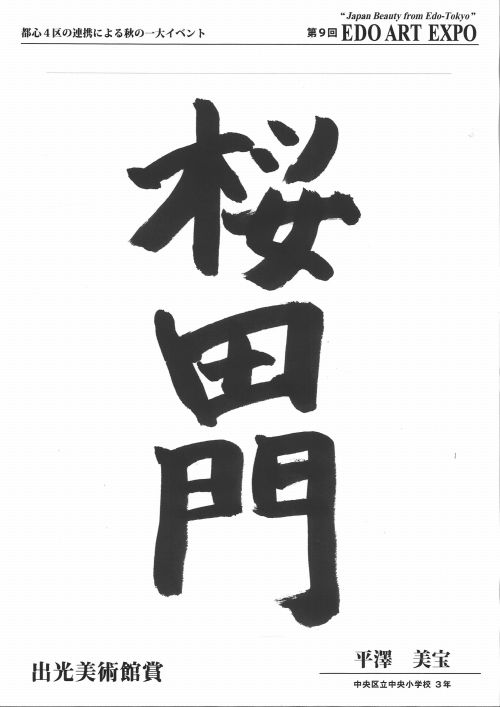 "Japan Beauty from Edo-Tokyo"
都心4区の連携による秋の一大イベント 第9回 EDO ART EXPO
桜田門
出光美術館賞
平澤 美宝
中央区立中央小学校 3年